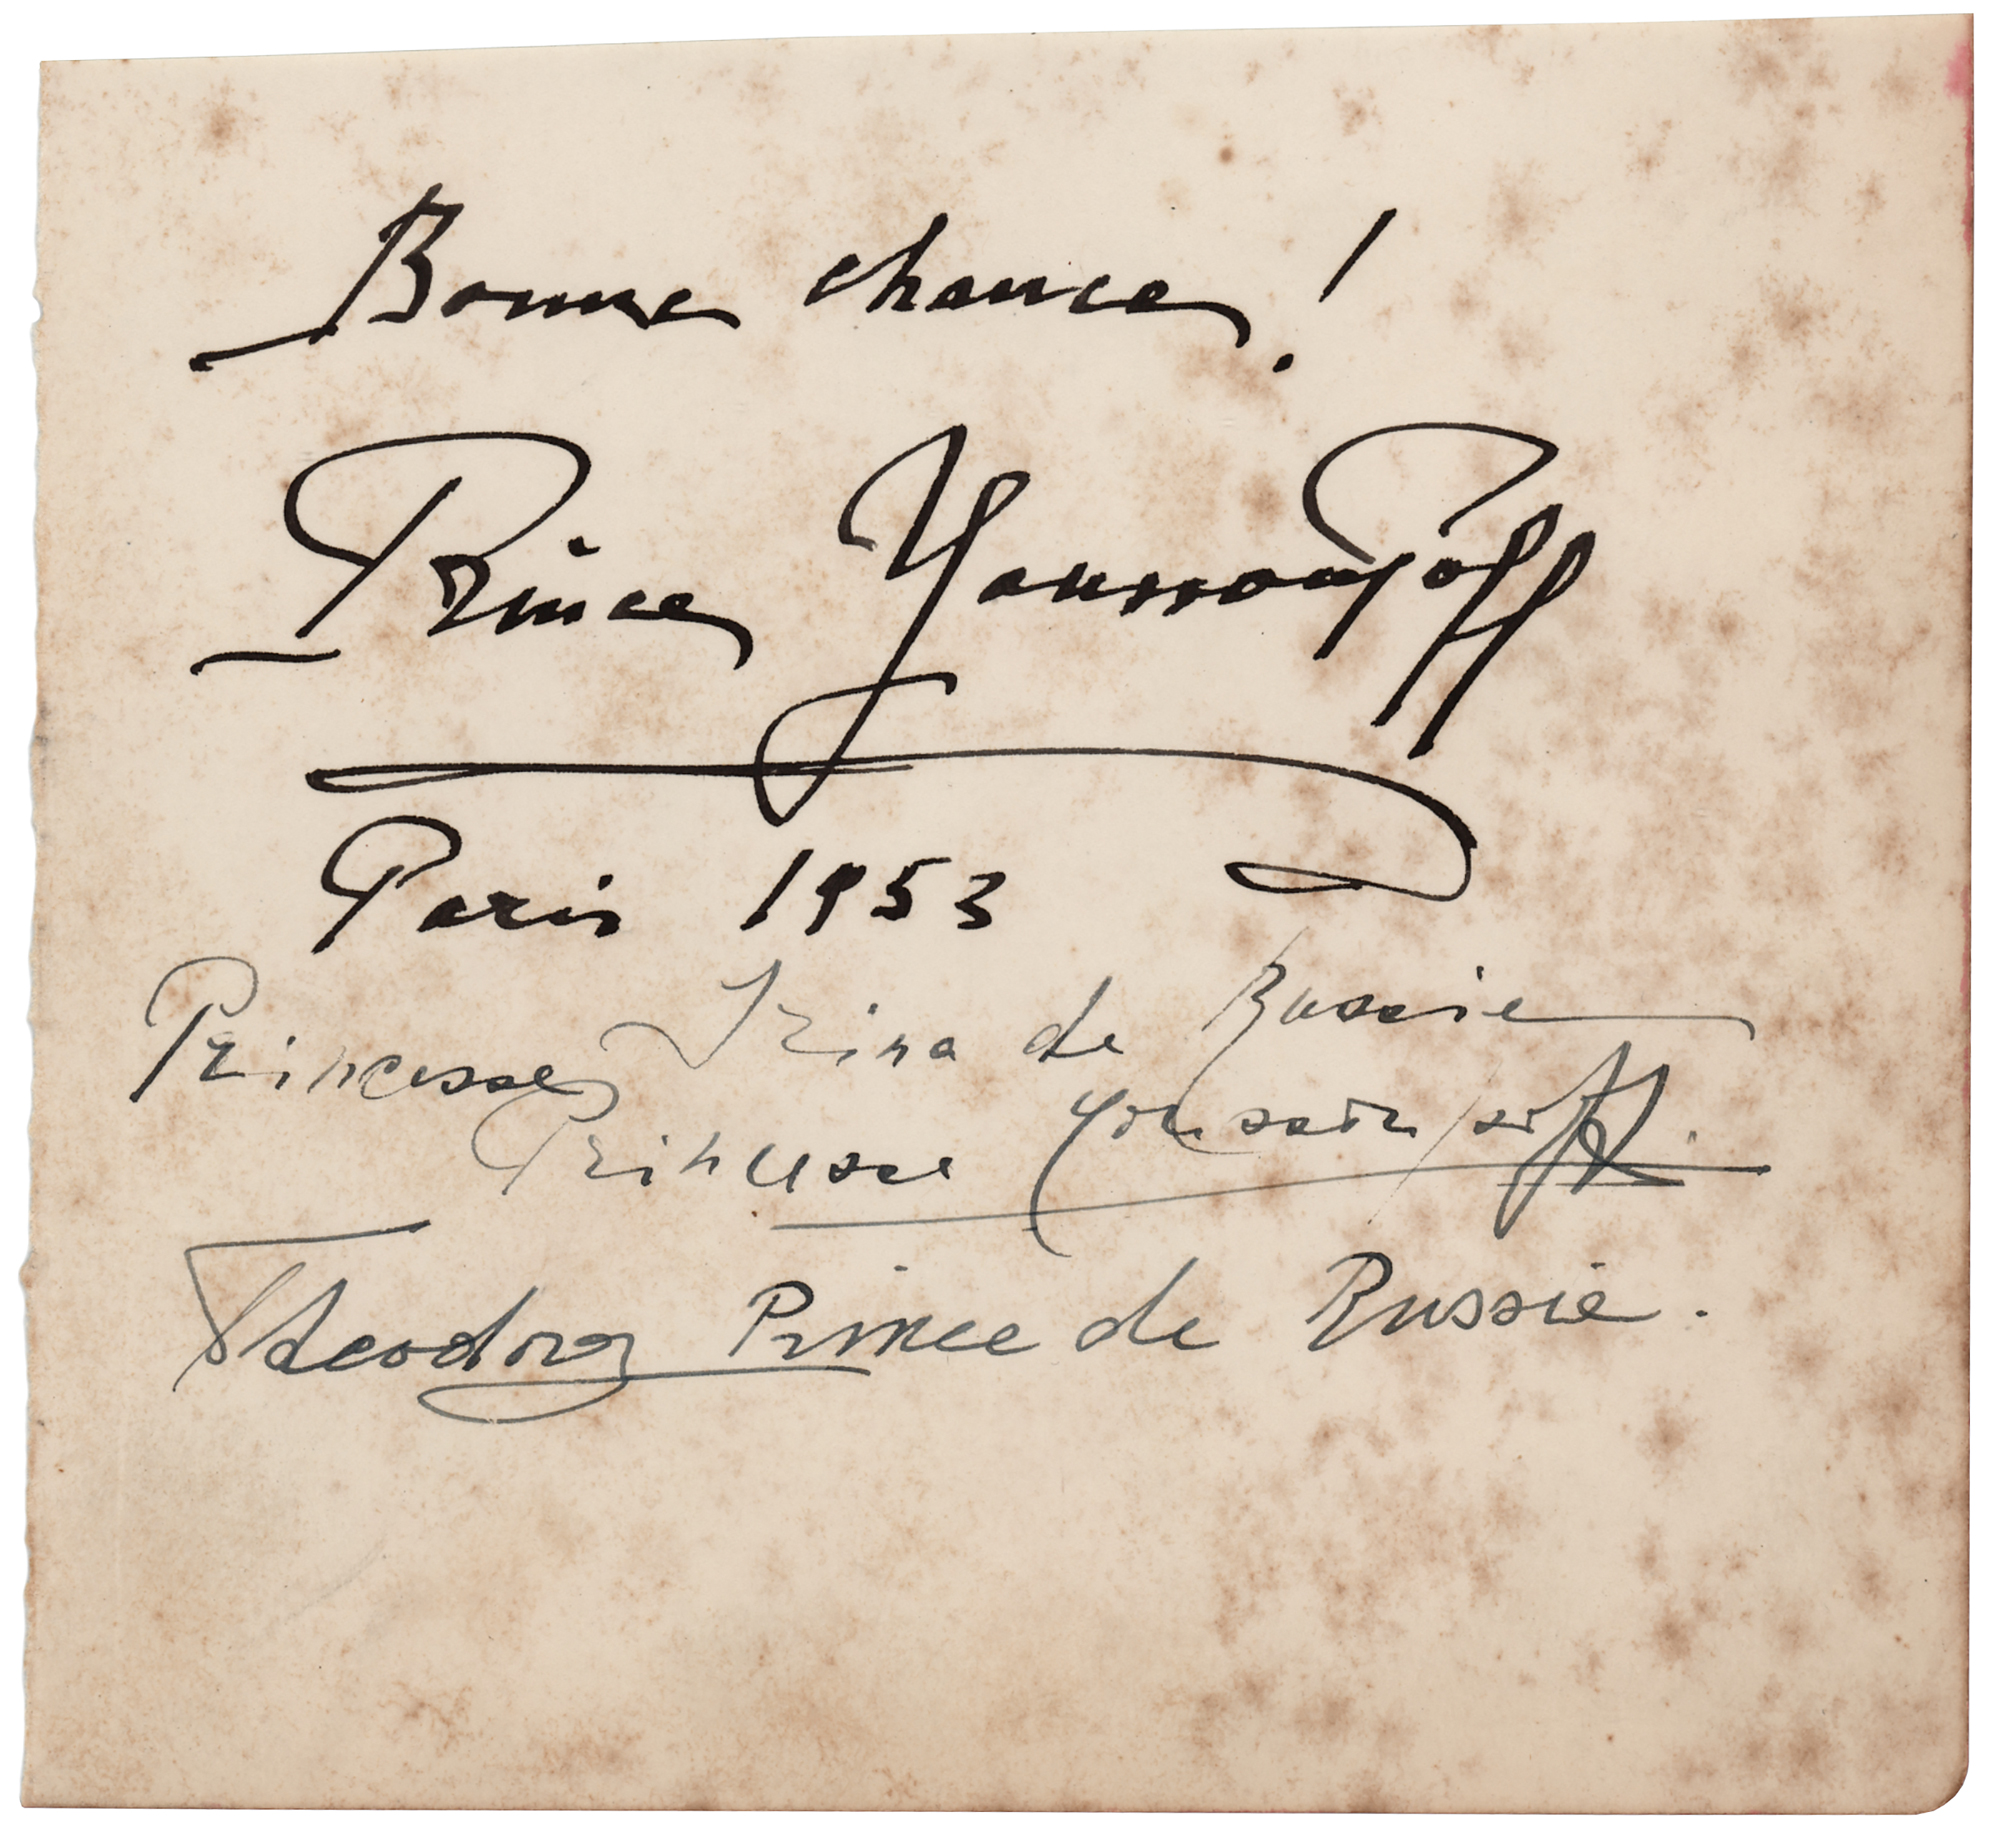 Bonne chance!
Prince Youssoupoff
Paris 1953
Princesse Irina de Russie
Princesse Youssoupoff.
Theodor Prince de Russie.